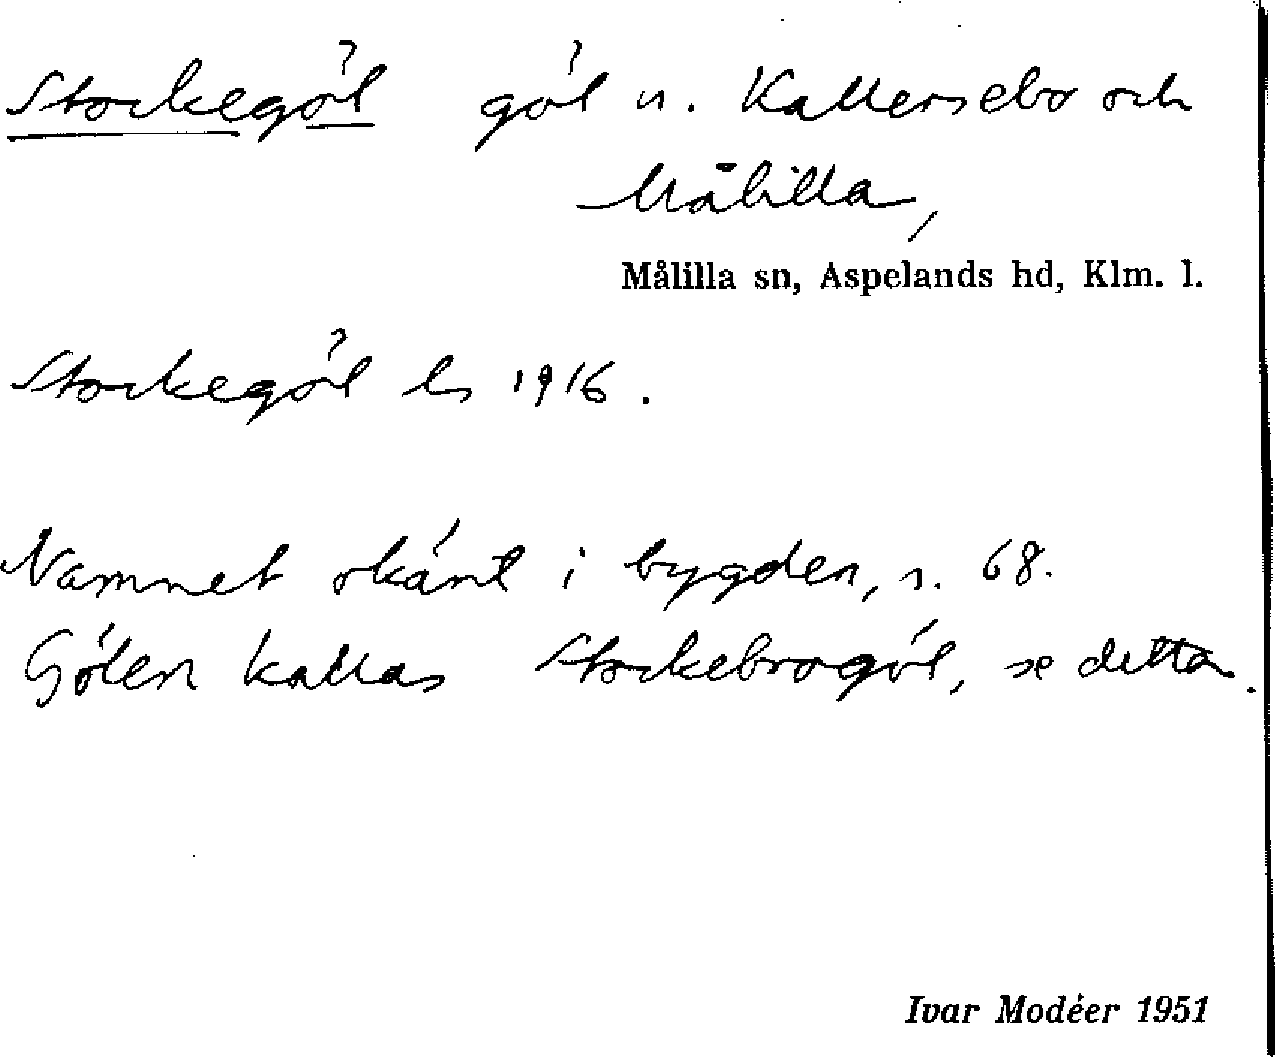 Stockegöl göl u. Kallersebo och
Målilla,
Målilla sn, Aspelands hd, Klm. l.
Stockegöl ls 1916.
Namnet okänt i bygden, s. 68.
Gölen kallas Stockebrogöl, se detta.
Ivar Modéer 1951